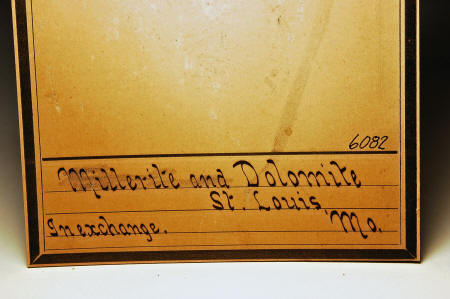 6082
Millerite and Dolomite
St. Louis,
In exchange. Mo.